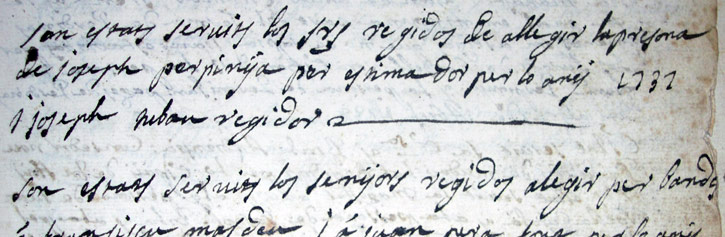 son estats servits los srs regidos de allegir la presona
de joseph perpinija per estimador per lo anij 1737
i joseph ruban regidor
son estats servits los senijors regidos alegir per
a masdeu i á juan per lo anij